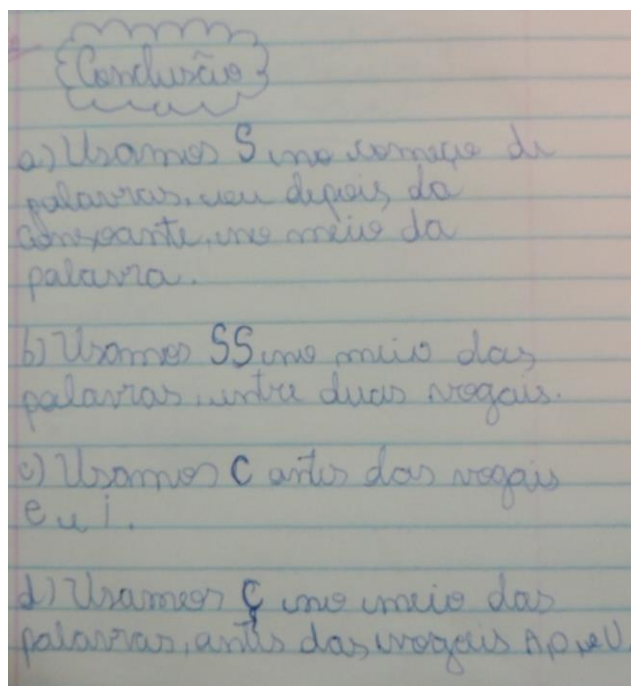 Conclusão
a) Usamos S no começo de
palavras, ou depois da
consoante, no meio da
palavra.
b) Usamos SS no meio das
palavras, entre duas vogais.
c) Usamos C antes das vogais
e e i.
d) Usamos Ç no meio das
palavras, antes das vogais A, O, e U.